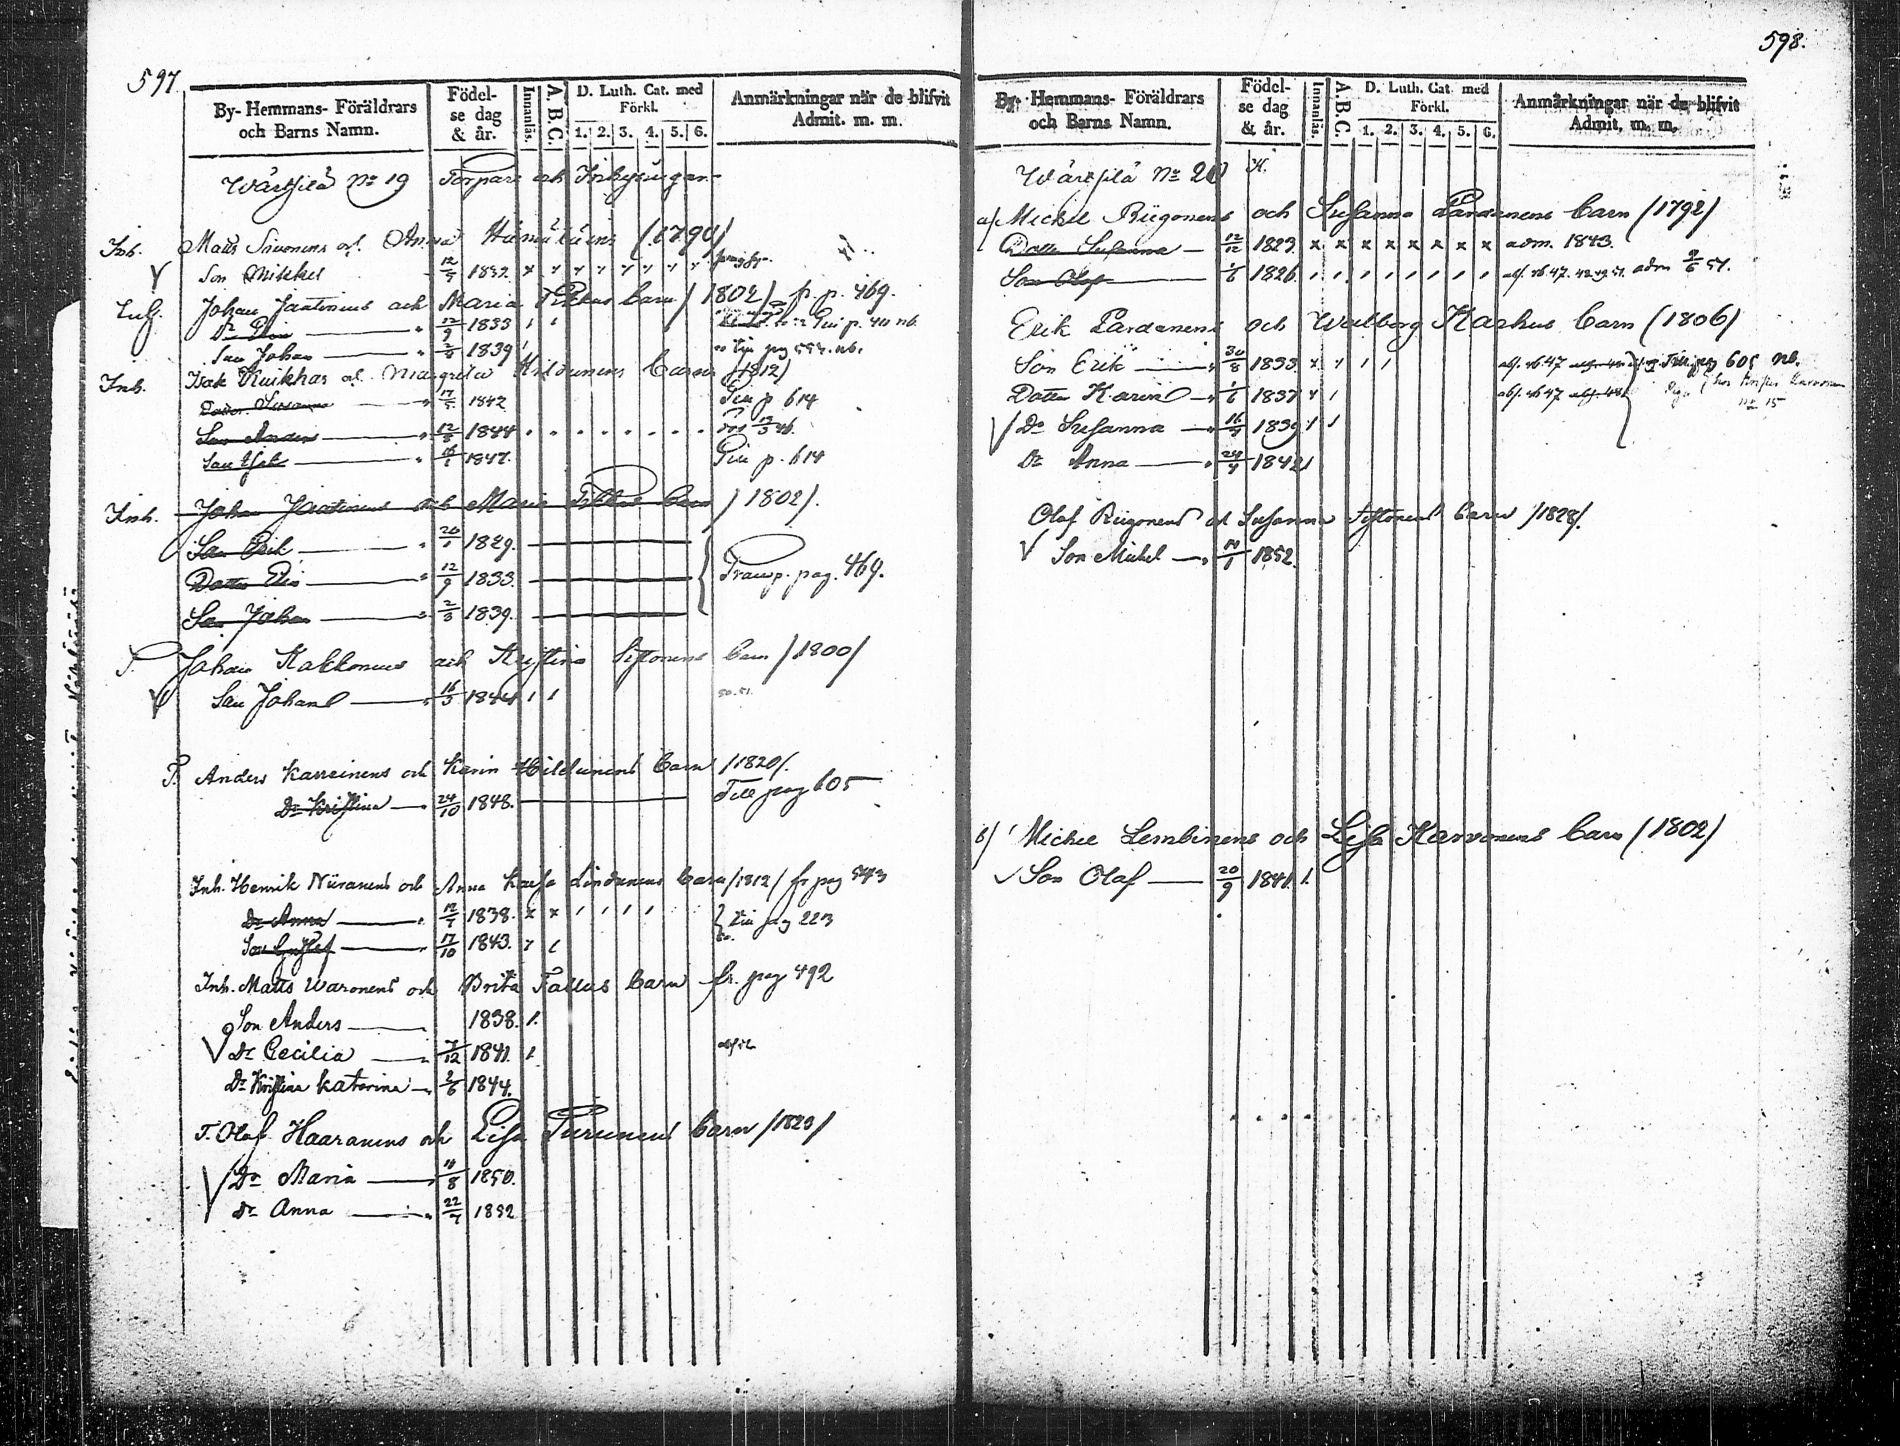 597.
By- Hemmans- Föräldrars och Barns Namn.
Födelse dag & år.
Innanläs.
A. B. C.
D. Luth. Cat. med Förkl.
1. 2. 3. 4. 5. 6.
Anmärkningar när de blifvit Admit. m. m.
Wärtsilä No 19 Torpare och Inhysingar
Inh. Matts och Anna (1790)
Son Mikkel 12/9 1832
Inh. Johan Jaatinens och Maria Tikkas barn (1802) fr. p. 469.
Dr Elin 12/9 1833
Son Johan 2/3 1839 Till pag
Inh. Isak Kuikkas och Margreta Hildunens barn (1812)
Dotter Susanna 17/5 1842 Till p. 614
Son Anders 12/3 1844
Son Isak 1847 Till p. 614
Inh. Johan Jaatinens och Maria Tikkas barn /1802/.
Son Erik 20/1 1829.
Dotter Elin 12/9 1833. Transp. pag. 469.
Son Johan 2/3 1839.
T. Johan Kakkonens och Kristina Sistonens barn /1800/
Son Johan 16/3 1844 50.51.
T. Anders Karreinens och Karin Hildunens barn /1820/.
Dr Kristina 24/10 1848. Till pag 605
Inh. Henrik Niiranens och Anna Kaisa Lindunens barn /1812/ fr pag 543
Dr Anna 12/7 1838. Till pag 223
Son Gustef 17/10 1843.
Inh. Matts Waronens och Brita Kallus barn fr. pag 492
Son Anders 1838.
Dr Cecilia 7/12 1841
Dr Kristina Katarina 2/6 1844.
T. Olof Haaranens och Lisa Turunens barn /1823/
Dr Maria 10/8 1850.
Dr Anna 22/7 1852
598.
By- Hemmans- Föräldrars och Barns Namn.
Födelse dag & år.
Innanläs.
A. B. C.
D. Luth. Cat. med Förkl.
1. 2. 3. 4. 5. 6.
Anmärkningar när de blifvit Admit. m. m.
Wärtsilä No 20 H.
a/ Michel Riigonens och Susanna Pardanens barn (1792)
Dotter Susanna 12/12 1823 x x x x x x x x adm. 1843.
Son Olof 1/6 1826 adm 9/6 51.
Erik Pardanens och Walborg Karhus barn (1806)
Son Erik 30/8 1833 abs. 46 47 Till pag 605 nb.
Dotter Karin 1/6 1837 abs. 46 47
Dr Susanna 16/9 1839
Dr Anna 24/4 1842
Olof Riigonens och Susanna Sistonens barn /1828/.
Son Mickel 14/1 1852.
b/ Michel Lembinens och Lisa Karvonens barn (1802)
Son Olaf 20/9 1841